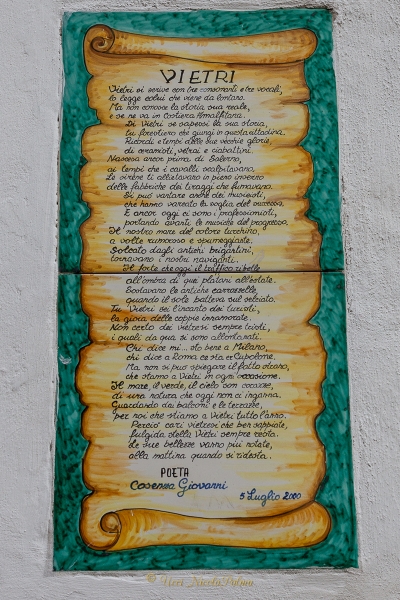 VIETRI
Vietri si scrive con tre consonanti e tre vocali,
lo legge colui che viene da lontano.
Ma non conosce la storia sua reale,
e se ne va in Costiera Amalfitana.
Di Vietri se sapessi la sua storia,
tu forestiero che giungi in questa cittadina.
Ricordi e tempi delle sue vecchie glorie,
di ceramisti, vetrai e ciabattini.
Nasceva ancor prima di Salerno,
ai tempi che i cavalli scalpitavano.
Le sirene ti allietavano in pieno inverno
delle fabbriche dei tiraggi che fumavano.
Si può vantare anche dei musicisti,
che hanno varcato la soglia del successo.
E ancor oggi ci sono i professionisti,
portando avanti le musiche del progresso.
Il nostro mare del colore turchino,
a volte rumoroso e spumeggiante.
Solcato dagli antichi brigantini,
tornavano i nostri naviganti.
Il forte che oggi il traffico ribelle
all'ombra di quei platani all'estate.
Sostavano le antiche carrozzelle
quando il sole batteva sul selciato.
Tu Vietri sei l'incanto dei turisti,
la gioia delle coppie innamorate.
Non certo dei vietresi sempre tristi,
i quali da qua si sono allontanati.
Chi dice mi... sto bene a Milano,
chi dice a Roma ce sta er Cupolone.
Ma non si può spiegare il fatto strano,
che stiamo a Vietri in ogni occasione.
Il mare, il verde, il cielo son cocenze,
di una natura che oggi non ci inganna.
Guardando dai balconi e le terrazze,
per noi che stiamo a Vietri tutto l'anno.
Perciò cari vietresi che ben sappiate,
fulgida stella Vietri sempre resta.
Le sue bellezze vanno più notate,
alla mattina quando si ridesta.
POETA
Cosenza Giovanni
5 Luglio 2000